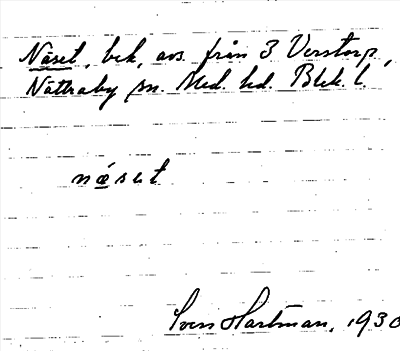 Näset, bek, avs. från 3 Verstorp,
Nättraby sn. Med. hd. Blek. l.
næset
Sven Hartman, 1930